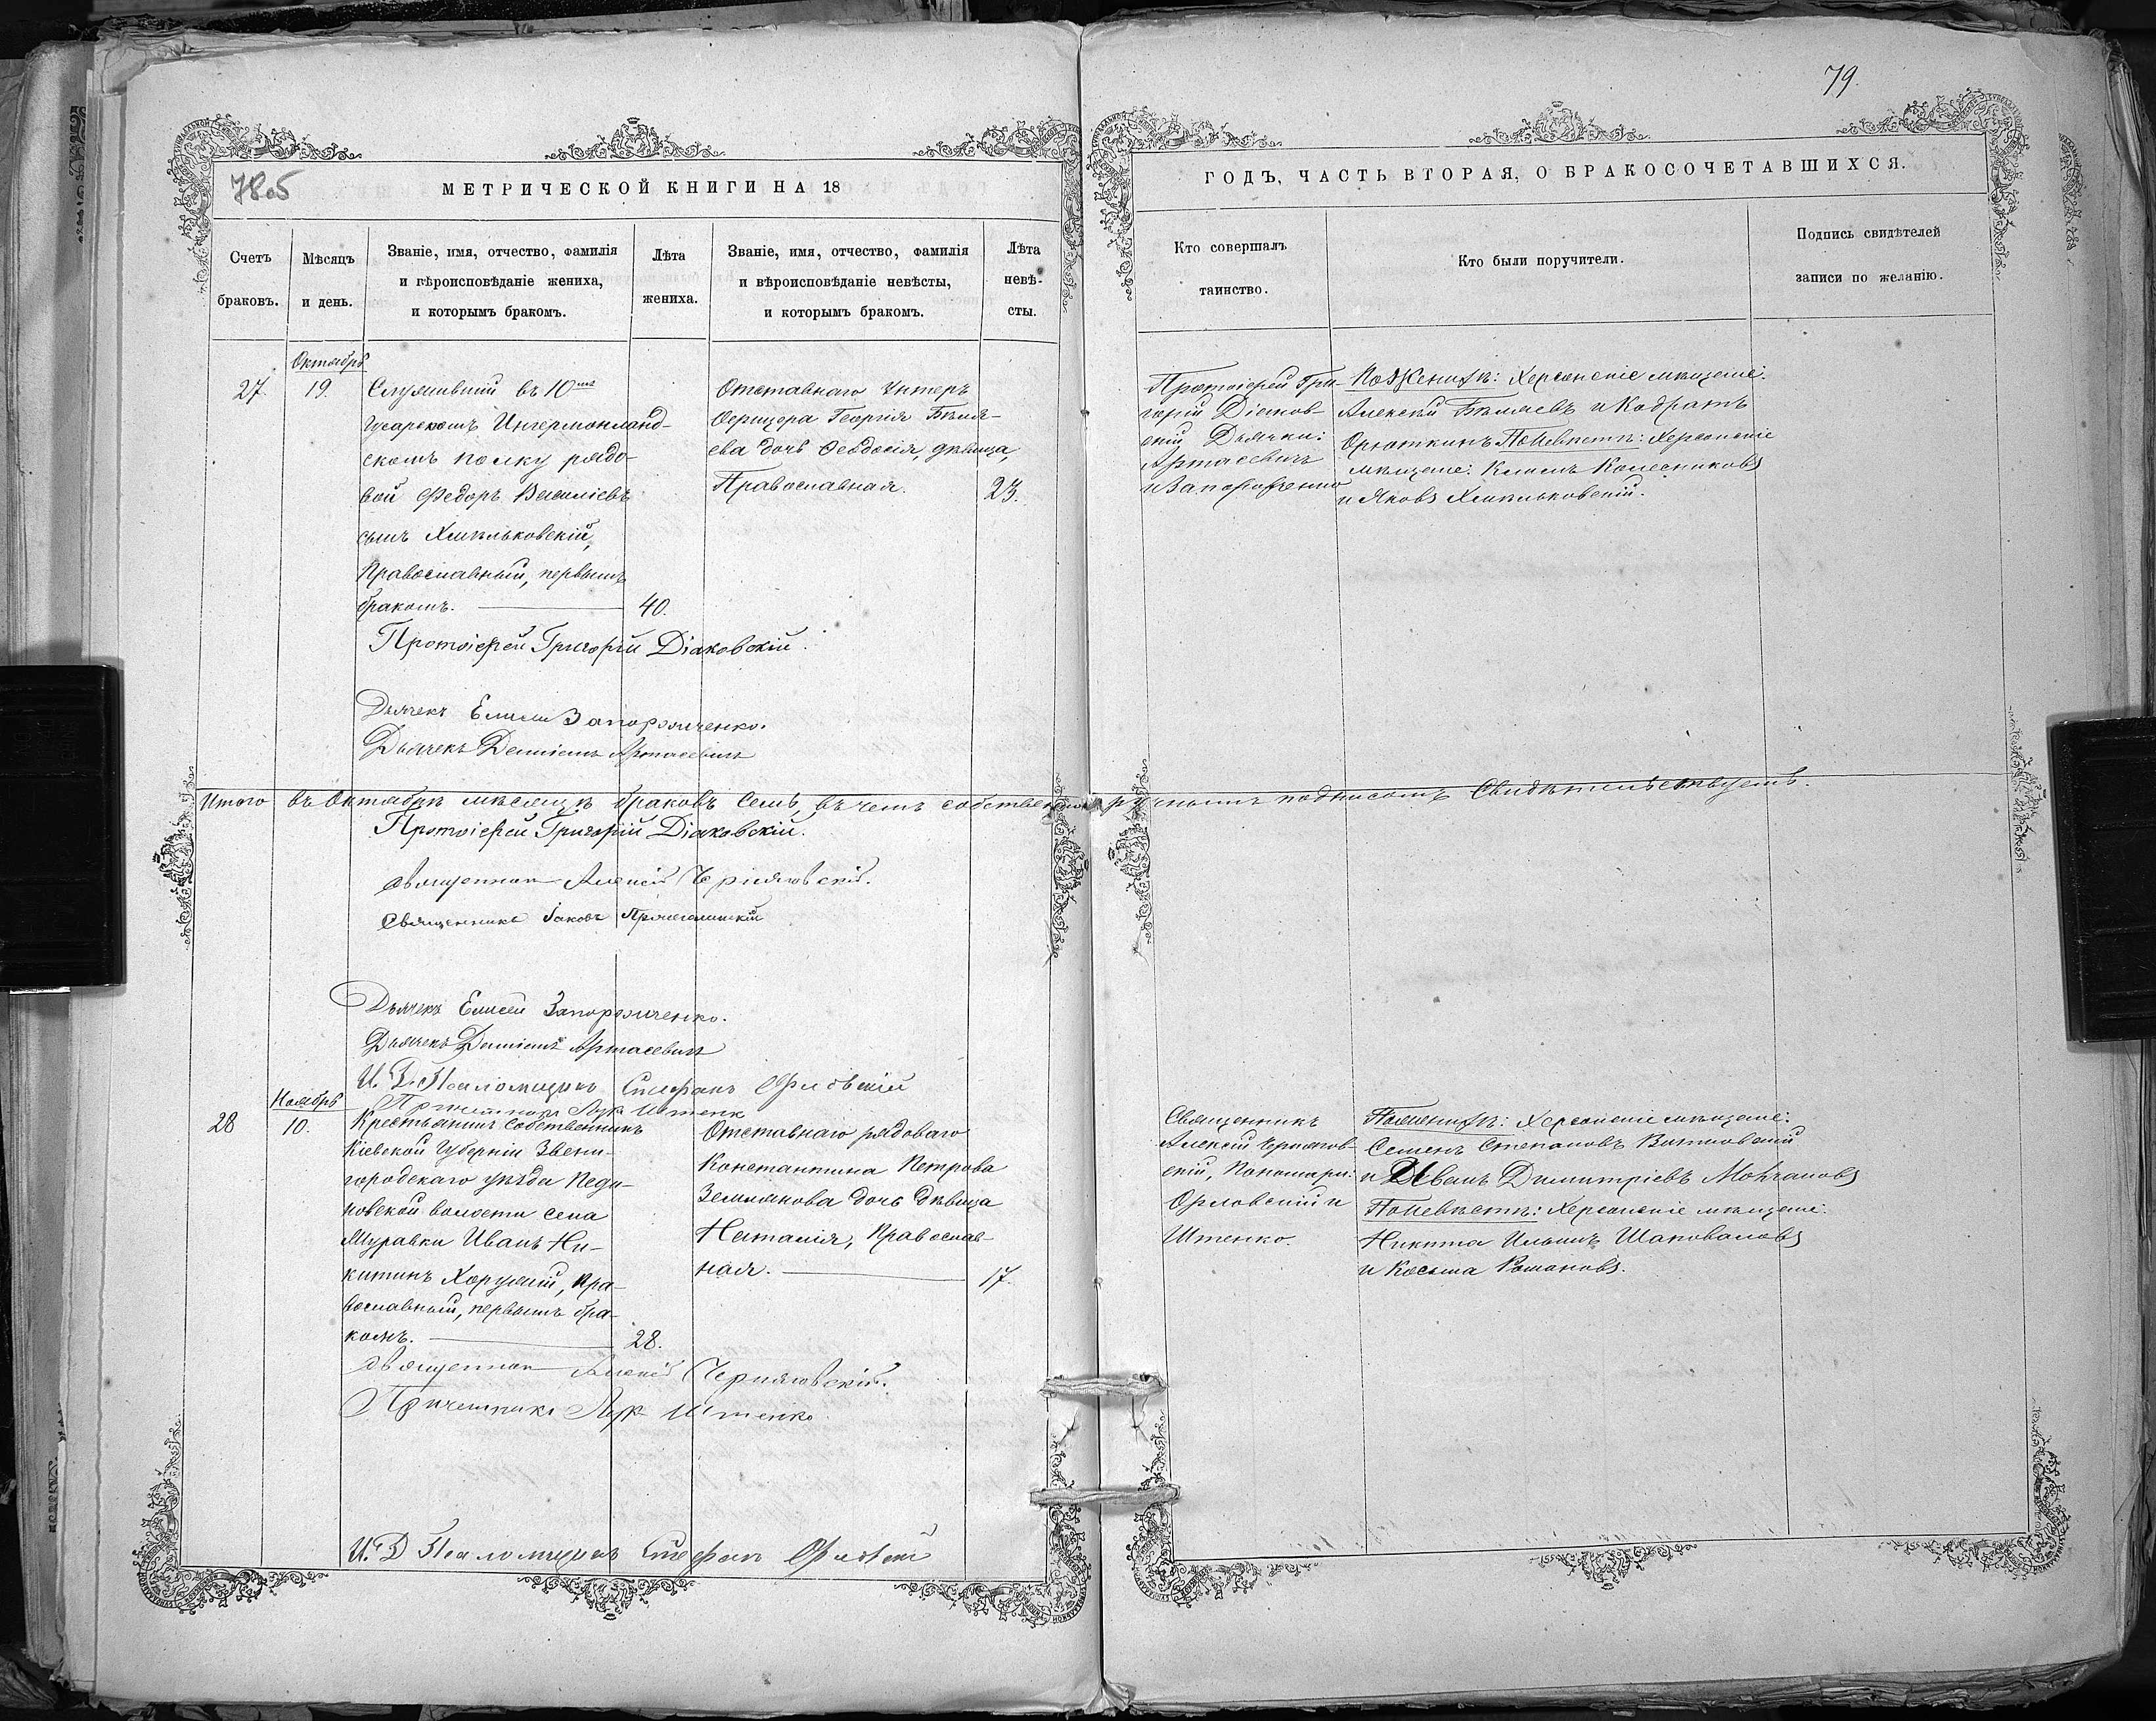 79.
78об
МЕТРИЧЕСКОЙ КНИГИ НА 18
Счетъ
браковъ.
Мѣсяцъ
и день.
Званіе, имя, отчество, фамилія
и вѣроисповѣданіе жениха,
и которымъ бракомъ.
Лѣта
жениха.
Званіе, имя, отчество, фамилія
и вѣроисповѣданіе невѣсты,
и которымъ бракомъ.
Лѣта
невѣ-
сты.
Октябрь
27.
19.
Служившій въ 10мъ
Гусарскомъ Ингерманланд-
скомъ полку рядо-
вой Федоръ Василіевъ
сынъ Хмѣльковскій,
Православный, первымъ
бракомъ.
40.
Отставнаго Унтеръ
Офицера Георгія Бѣля-
ева дочь Феодосія, дѣвица,
Православная.
23.
Протоіерей Григорій Діаковскій.
Дьячекъ Елисей Запорожченко.
Дьячекъ Даміанъ Артасевич
Итого въ Октябрѣ мѣсяцѣ браковъ семь, въ чемъ собственноручнымъ подписомъ Свидѣтельствуемъ.
Протоіерей Григорій Діаковскій.
Священник Алексій Черняховскій.
Священникъ Іаковъ
Дьячекъ Елисей Запорожченко.
Дьячекъ Даміанъ Артасевич
И. Д. Псаломщика Стефанъ Орловскій
Причетникъ Лук Штенко
Ноябрь
28
10.
Крестьянинъ собственникъ
Кіевской Губерніи Звени-
городскаго уѣзда Педи-
новской волости села
Муравки Иванъ Ни-
китинъ Хоружій, Пра-
вославный, первымъ бра-
комъ.
28.
Отставнаго рядоваго
Константина Петрова
Землякова дочь дѣвица
Наталія, Православ-
ная.
17.
Священник Алексій Черняховскій.
Причетникъ Лук Штенко
И. Д. Псаломщика Стефанъ Орловскій
ГОДЪ, ЧАСТЬ ВТОРАЯ, О БРАКОСОЧЕТАВШИХСЯ.
Кто совершалъ
таинство.
Кто были поручители.
Подпись свидѣтелей
записи по желанію.
Протоіерей Гри-
горій Діаков-
скій Дьячки:
Артасевичъ
и Запорожченко
По Женихѣ: Херсонскіе мѣщане:
Алексѣй Бѣляевъ и Кодратъ
Орюткинъ По Невѣстѣ: Херсонскіе
мѣщане: Климъ Колесниковъ
и Яковъ Хмѣльковскій.
Священникъ
Алексій Черняхов-
скій, Пономари:
Орловскій и
Штенко.
По Женихѣ: Херсонскіе мѣщане:
Семенъ Степановъ
и Иванъ Димитріевъ Молчановъ
По Невѣстѣ: Херсонскіе мѣщане:
Никита Ильинъ Шаповаловъ
и Косьма Романовъ.